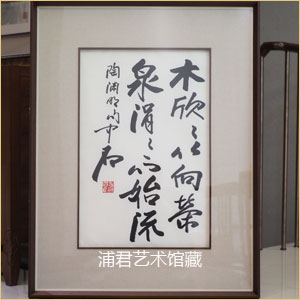 木欣々以向榮
泉涓々而始流
陶渊明句中石
浦君艺术馆藏